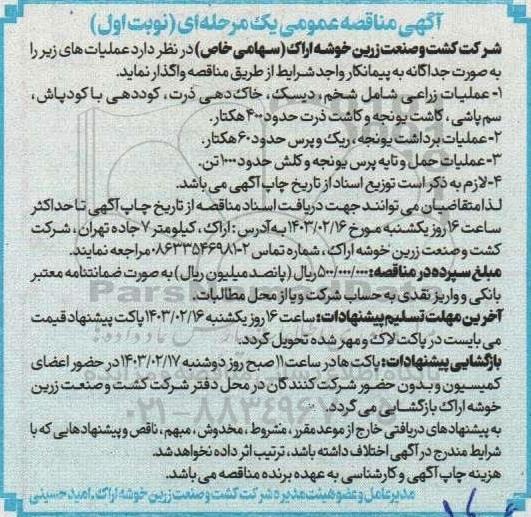 آگهی مناقصه عمومی یک مرحله ای (نوبت اول)
شرکت کشت و صنعت زرین خوشه اراک (سهامی خاص) در نظر دارد عملیات های زیر را
به صورت جداگانه به پیمانکار واجد شرایط از طریق مناقصه واگذار نماید.
۱- عملیات زراعی شامل شخم، دیسک، خاک دهی ذرت، کوددهی با کودپاش،
سم پاشی، کاشت یونجه و کاشت ذرت حدود ۴۰۰ هکتار.
۲- عملیات برداشت یونجه، ریک و پرس حدود ۶۰ هکتار.
۳- عملیات حمل و تایه پرس یونجه و کلش حدود ۱۰۰۰ تن.
۴- لازم به ذکر است توزیع اسناد از تاریخ چاپ آگهی می باشد.
لذا متقاضیان می توانند جهت دریافت اسناد مناقصه از تاریخ چاپ آگهی تا حداکثر
ساعت ۱۶ روز یکشنبه مورخ ۱۴۰۳/۰۲/۱۶ به آدرس: اراک، کیلومتر ۷ جاده تهران، شرکت
کشت و صنعت زرین خوشه اراک، شماره تماس ۲-۰۸۶۳۳۵۴۶۹۸۱ مراجعه نمایند.
مبلغ سپرده در مناقصه: ۵۰۰/۰۰۰/۰۰۰ ریال (پانصد میلیون ریال) به صورت ضمانتنامه معتبر
بانکی و واریز نقدی به حساب شرکت و یا از محل مطالبات.
آخرین مهلت تسلیم پیشنهادات: ساعت ۱۶ روز یکشنبه ۱۴۰۳/۰۲/۱۶ پاکت پیشنهاد قیمت
می بایست در پاکت لاک و مهر شده تحویل گردد.
بازگشایی پیشنهادات: پاکت ها در ساعت ۱۱ صبح روز دوشنبه ۱۴۰۳/۰۲/۱۷ در حضور اعضای
کمیسیون و بدون حضور شرکت کنندگان در محل دفتر شرکت کشت و صنعت زرین
خوشه اراک بازگشایی می گردد.
به پیشنهادهای دریافتی خارج از موعد مقرر، مشروط، مخدوش، مبهم، ناقص و پیشنهادهایی که با
شرایط مندرج در آگهی اختلاف داشته باشد، ترتیب اثر داده نخواهد شد.
هزینه چاپ آگهی و کارشناسی به عهده برنده مناقصه می باشد.
مدیرعامل و عضو هیئت مدیره شرکت کشت و صنعت زرین خوشه اراک. امید حسینی